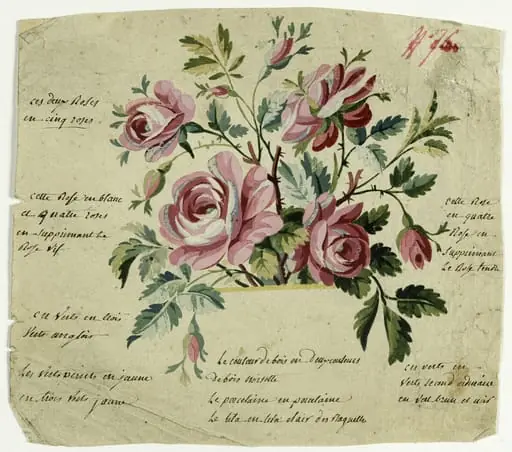 N° 76.
ces deux Roses
en cinq roses.
cette Rose en blanc
et quatre roses
en supprimant Le
Rose vif
cette Rose
en quatre
Rose en
supprimant
Le Rose tendre
ces verts en trois
verts anglois
Les verts
en jaune
en trois verts jaune
Le couleur de bois en deux couleurs
de bois
Le porcelaine en porcelaine
Le lila en lila clair des
ces verts en
verts second ordinaire
en vert brun et